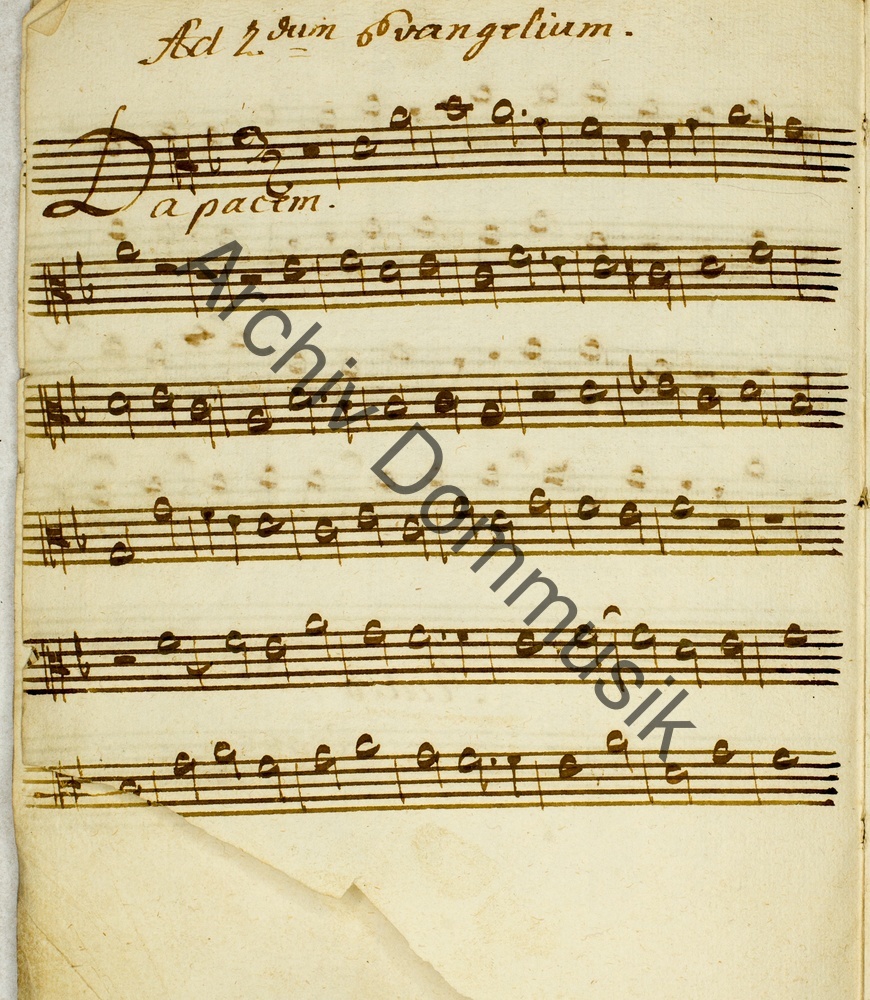 Ad 2.dum Evangelium.
Da pacem.
Archiv Dommusik